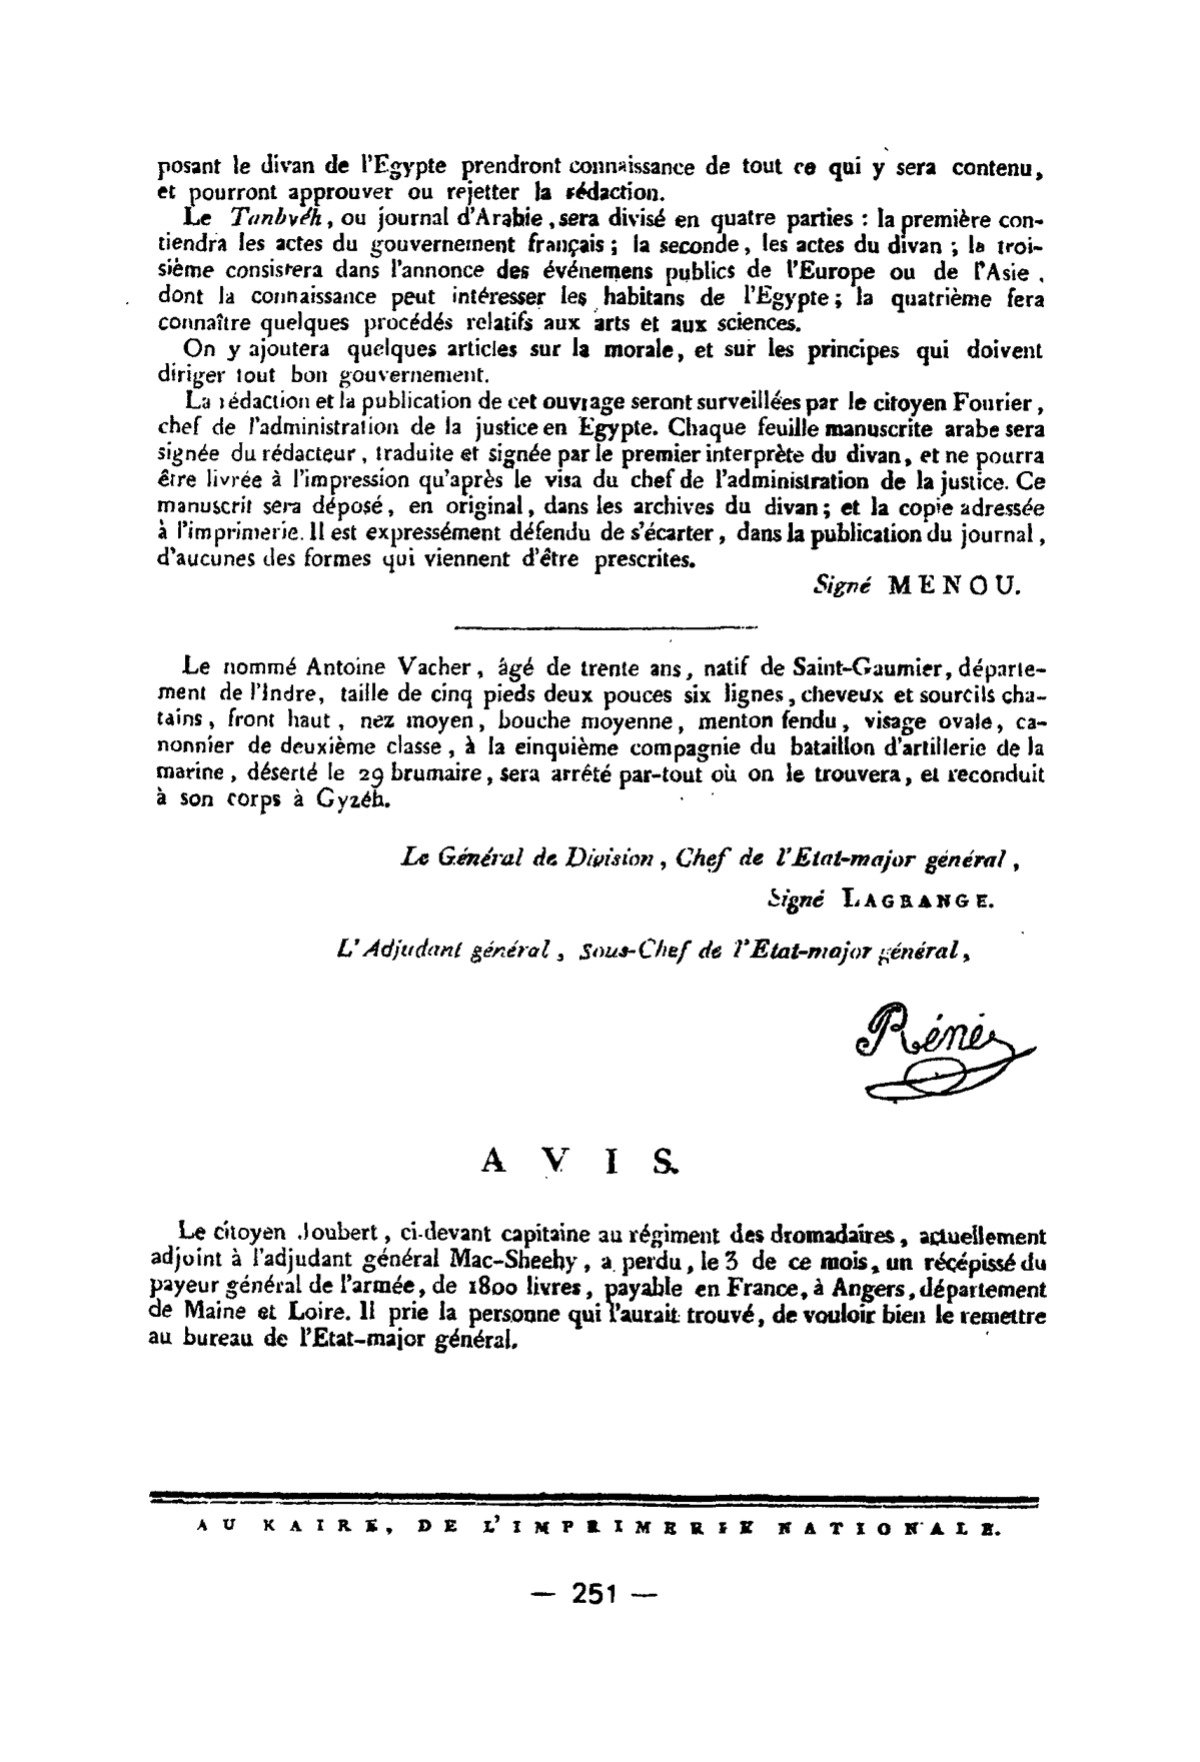 posant le divan de l'Egypte prendront connaissance de tout ce qui y sera contenu,
et pourront approuver ou rejetter la rédaction.
Le Tanbyéh, ou journal d'Arabie, sera divisé en quatre parties : la première con-
tiendra les actes du gouvernement français ; la seconde, les actes du divan ; la troi-
sième consistera dans l'annonce des événemens publics de l'Europe ou de l'Asie,
dont la connaissance peut intéresser les habitans de l'Egypte ; la quatrième fera
connaître quelques procédés relatifs aux arts et aux sciences.
On y ajoutera quelques articles sur la morale, et sur les principes qui doivent
diriger tout bon gouvernement.
La rédaction et la publication de cet ouvrage seront surveillées par le citoyen Fourier,
chef de l'administration de la justice en Egypte. Chaque feuille manuscrite arabe sera
signée du rédacteur, traduite et signée par le premier interprète du divan, et ne pourra
être livrée à l'impression qu'après le visa du chef de l'administration de la justice. Ce
manuscrit sera déposé, en original, dans les archives du divan ; et la copie adressée
à l'imprimerie. Il est expressément défendu de s'écarter, dans la publication du journal,
d'aucunes des formes qui viennent d'être prescrites.
Signé MENOU.
Le nommé Antoine Vacher, âgé de trente ans, natif de Saint-Gaumier, départe-
ment de l'Indre, taille de cinq pieds deux pouces six lignes, cheveux et sourcils cha-
tains, front haut, nez moyen, bouche moyenne, menton fendu, visage ovale, ca-
nonnier de deuxième classe, à la cinquième compagnie du bataillon d'artillerie de la
marine, déserté le 29 brumaire, sera arrêté par-tout où on le trouvera, et reconduit
à son corps à Gyzéh.
Le Général de Division, Chef de l'Etat-major général,
Signé LAGRANGE.
L'Adjudant général, Sous-Chef de l'Etat-major général,
Réné
AVIS.
Le citoyen Joubert, ci-devant capitaine au régiment des dromadaires, actuellement
adjoint à l'adjudant général Mac-Sheehy, a perdu, le 3 de ce mois, un récépissé du
payeur général de l'armée, de 1800 livres, payable en France, à Angers, département
de Maine et Loire. Il prie la personne qui l'aurait trouvé, de vouloir bien le remettre
au bureau de l'Etat-major général.
AU KAIRE, DE L'IMPRIMERIE NATIONALE.
— 251 —